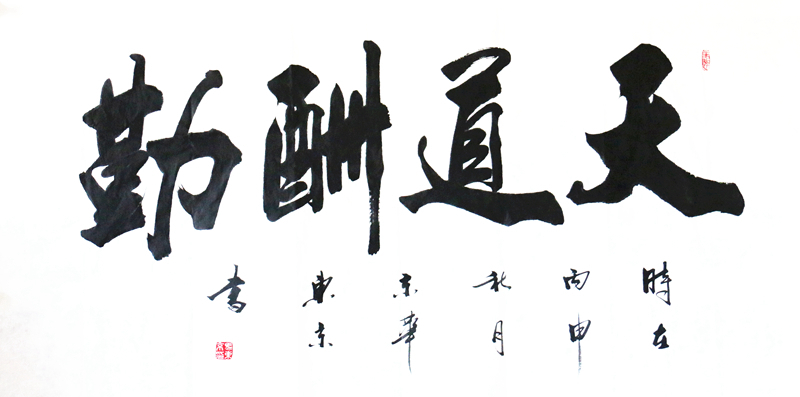 天道酬勤
時在
丙申
秋月
京華
書